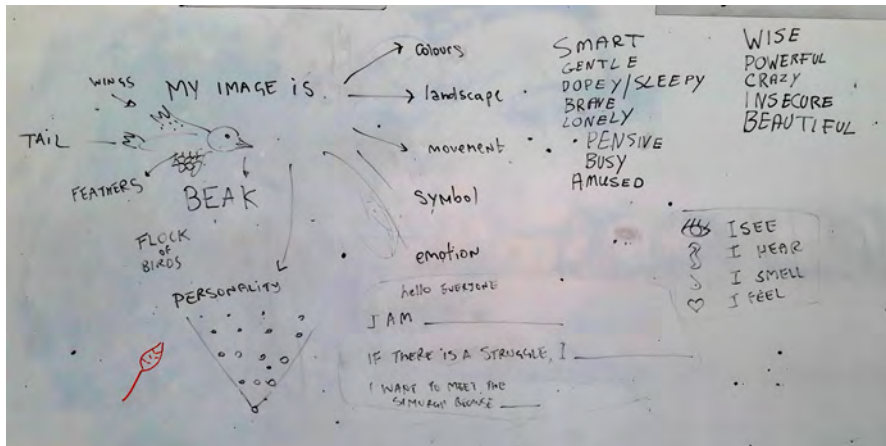 WINGS
MY IMAGE IS
TAIL
FEATHERS
BEAK
FLOCK
OF
BIRDS
PERSONALITY
Colours
landscape
movement
Symbol
emotion
SMART
GENTLE
DOPEY/SLEEPY
BRAVE
LONELY
PENSIVE
BUSY
AMUSED
WISE
POWERFUL
CRAZY
INSECURE
BEAUTIFUL
I SEE
I HEAR
I SMELL
I FEEL
hello EVERYONE
I AM
IF THERE IS A STRUGGLE, I
I WANT TO MEET THE
SIMURGH BECAUSE